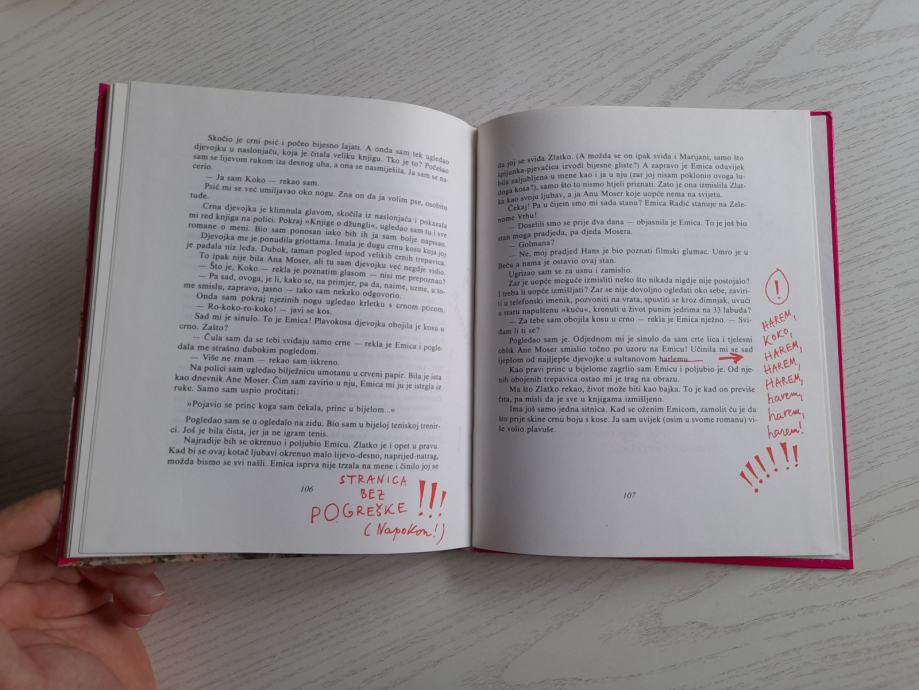 Skočio je crni psić i počeo bijesno lajati. A onda sam tek ugledao
djevojku u naslonjaču, koja je čitala veliku knjigu. Tko je to? Počešao
sam se lijevom rukom iza desnog uha, a ona se nasmiješila. Ja sam se na-
cerio.
— Ja sam Koko — rekao sam.
Psić mi se već umiljavao oko nogu. Zna on da ja volim pse, osobito
tuđe.
Crna djevojka je klimnula glavom, skočila iz naslonjača i pokazala
mi red knjiga na polici. Pokraj »Knjige o džungli«, ugledao sam tu i sve
romane o meni. Bio sam ponosan iako bih ih ja sam bolje napisao.
Djevojka me je ponudila griottama. Imala je dugu crnu kosu koja joj
je padala niz leđa. Dubok, taman pogled ispod velikih crnih trepavica.
To ipak nije bila Ana Moser, ali tu sam djevojku već negdje vidio.
— Što je, Koko — rekla je poznatim glasom — nisi me prepoznao?
— Pa sad, ovoga, je li, kako se, na primjer, pa da, naime, uzme, u to-
me smislu, zapravo, jasno — tako sam nekako odgovorio.
Onda sam pokraj njezinih nogu ugledao krletku s crnom pticom.
— Ro-koko-ro-koko! — javi se kos.
Sad mi je sinulo. To je Emica! Plavokosa djevojka obojila je kosu u
crno. Zašto?
— Čula sam da se tebi sviđaju samo crne — rekla je Emica i pogle-
dala me strašno dubokim pogledom.
— Više ne znam — rekao sam iskreno.
Na polici sam ugledao bilježnicu umotanu u crveni papir. Bila je ista
kao dnevnik Ane Moser. Čim sam zavirio u nju, Emica mi ju je istrgla iz
ruke. Samo sam uspio pročitati:
»Pojavio se princ koga sam čekala, princ u bijelom...«
Pogledao sam se u ogledalo na zidu. Bio sam u bijeloj teniskoj trenir-
ci. Još je bila čista, jer ja ne igram tenis.
Najradije bih se okrenuo i poljubio Emicu. Zlatko je i opet u pravu.
Kad bi se ovaj kotač ljubavi okrenuo malo lijevo-desno, naprijed-natrag,
možda bismo se svi našli. Emica isprva nije trzala na mene i činilo joj se
106
STRANICA
BEZ
POGREŠKE !!!
(Napokon!)
da joj se sviđa Zlatko. (A možda se on ipak sviđa i Marijani, samo što
špijunka-pjevačica izvodi bijesne gliste?) A zapravo je Emica oduvijek
bila zaljubljena u mene kao i ja u nju (zar joj nisam poklonio ovoga lu-
doga kosa?), samo što to nismo htjeli priznati. Zato je ona izmislila Zlat-
ka kao svoju ljubav, a ja Anu Moser koje uopće nema na svijetu.
Čekaj! Pa u čijem smo mi sada stanu? Emica Radić stanuje na Zele-
nome Vrhu!
— Doselili smo se prije dva dana — objasnila je Emica. To je još bio
stan moga pradjeda, pa djeda Mosera.
— Golmana?
— Ne, moj pradjed Hans je bio poznati filmski glumac. Umro je u
Beču a nama je ostavio ovaj stan.
Ugrizao sam se za usnu i zamislio.
Zar je uopće moguće izmisliti nešto što nikada nigdje nije postojalo?
I treba li uopće izmišljati? Zar se nije dovoljno ogledati oko sebe, zaviri-
ti u telefonski imenik, pozvoniti na vrata, spustiti se kroz dimnjak, uvući
u staru napuštenu »kuću«, krenuti u život punim jedrima na 33 labuda?
— Za tebe sam obojila kosu u crno — rekla je Emica nježno. — Svi-
đam li ti se?
Pogledao sam je. Odjednom mi je sinulo da sam crte lica i tjelesni
oblik Ane Moser smislio točno po uzoru na Emicu! Učinila mi se sad
ljepšom od najljepše djevojke u sultanovom harlemu.
Kao pravi princ u bijelome zagrlio sam Emicu i poljubio je. Od nje-
nih obojenih trepavica ostao mi je trag na obrazu.
Ma što Zlatko rekao, život može biti kao bajka. To je kad on previše
čita, pa misli da je sve u knjigama izmišljeno.
Ima još samo jedna sitnica. Kad se oženim Emicom, zamolit ću je da
što prije skine crnu boju s kose. Ja sam uvijek (osim u svome romanu) vi-
še volio plavuše.
107
!
HAREM,
KOKO,
HAREM,
HAREM,
HAREM,
harem,
harem,
harem!
!!!!!!